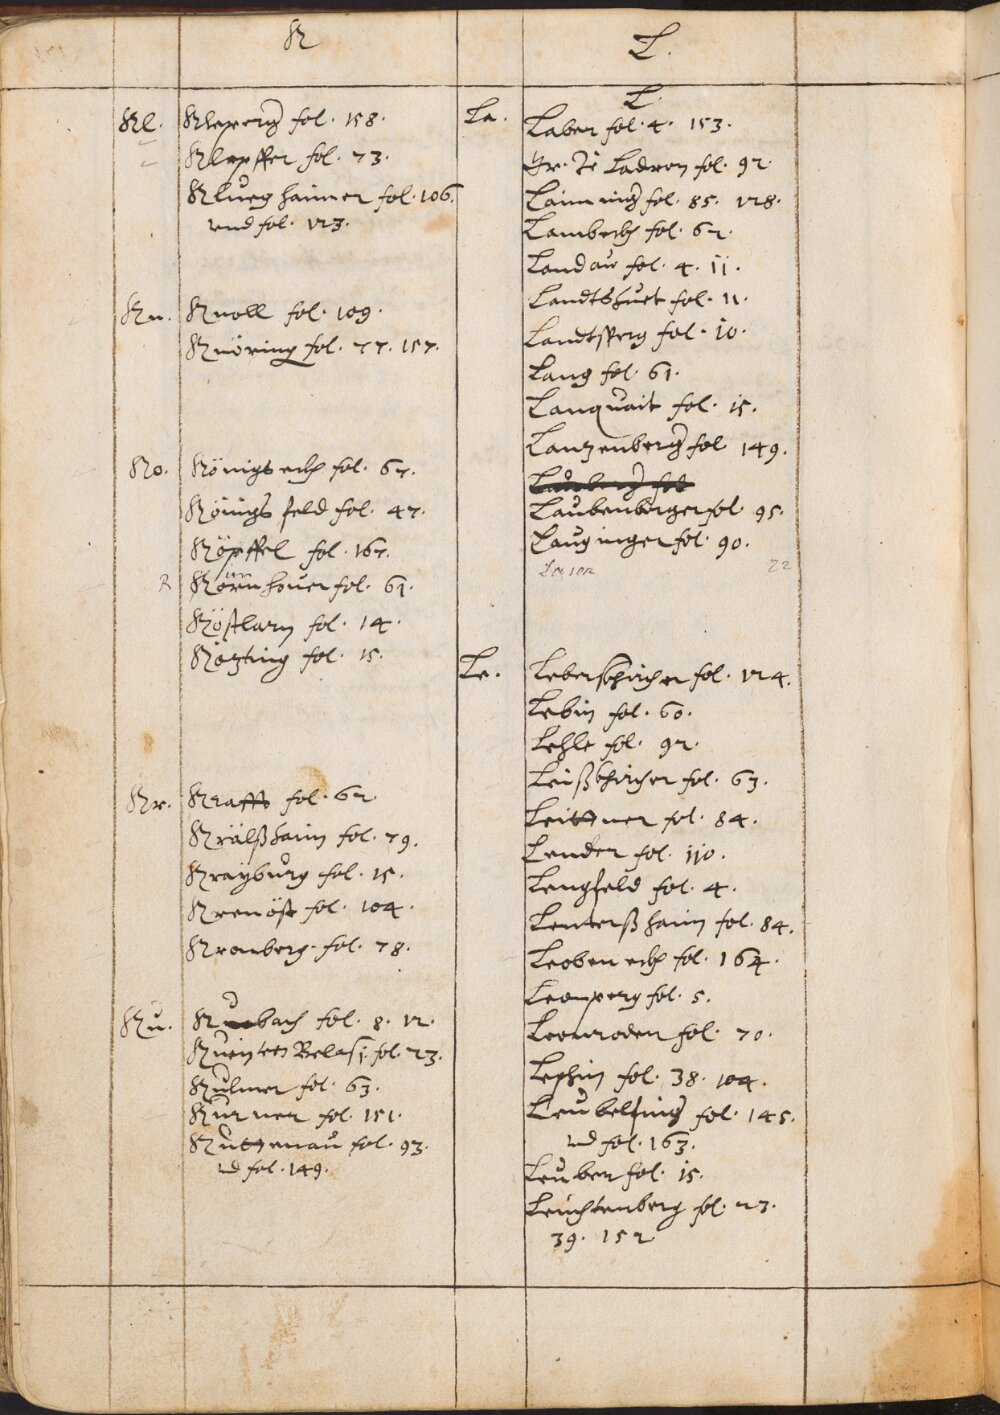 K
Kl.
Klepperg fol. 158.
Klopffer fol. 73.
Klueghaimer fol. 106.
vnd fol. 123.
Kn.
Knoll fol. 109.
Knöring fol. 77. 157.
Ko.
Königsech fol. 67.
Königsfeld fol. 47.
Köpffel fol. 167.
Kornhouer fol. 61.
Köstlarn fol. 14.
Közting fol. 15.
Kr.
Krafft fol. 62.
Krälßhaim fol. 79.
Krayburg fol. 15.
Krenöst fol. 104.
Kronberg fol. 78.
Ku.
Kubach fol. 8. 12.
Kuein von Belasi fol. 23.
Kulmer fol. 63.
Kurner fol. 151.
Kuttenau fol. 93.
vnd fol. 149.
L.
L.
La.
Laber fol. 4. 153.
Gr. zů Ladron fol. 92.
Laiming fol. 85. 128.
Lambech fol. 62.
Landau fol. 4. 11.
Landtshuet fol. 11.
Landtsperg fol. 10.
Lang fol. 61.
Langquait fol. 15.
Lanzenberg fol. 149.
Laubenberger fol. 95.
Lauginger fol. 90.
Le.
Leberskircher fol. 124.
Lebin fol. 60.
Lehle fol. 92.
Leißkhircher fol. 63.
Leittner fol. 84.
Lender fol. 110.
Lengfeld fol. 4.
Lenterßhaim fol. 84.
Leobenech fol. 164.
Leonperg fol. 5.
Leonroden fol. 70.
Lephin fol. 38. 104.
Leubelfing fol. 145.
vnd fol. 163.
Leuber fol. 15.
Leuchtenberg fol. 23.
39. 152